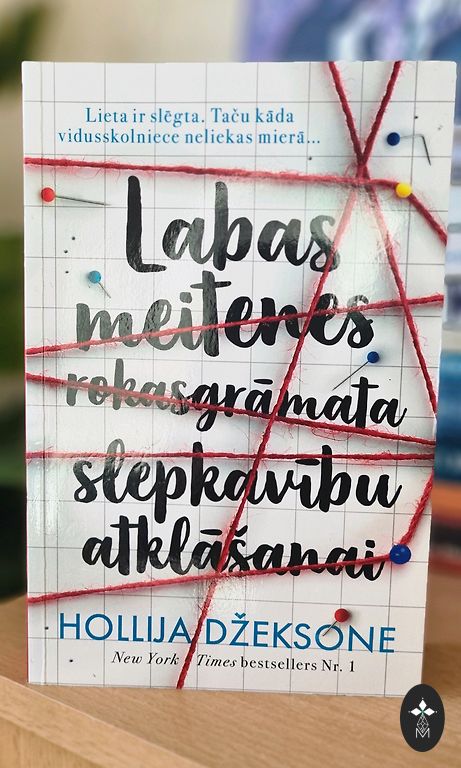 Lieta ir slēgta. Taču kāda
vidusskolniece neliekas mierā...
Labas
meitenes
rokasgrāmata
slepkavību
atklāšanai
HOLLIJA DŽEKSONE
New York Times bestsellers Nr. 1